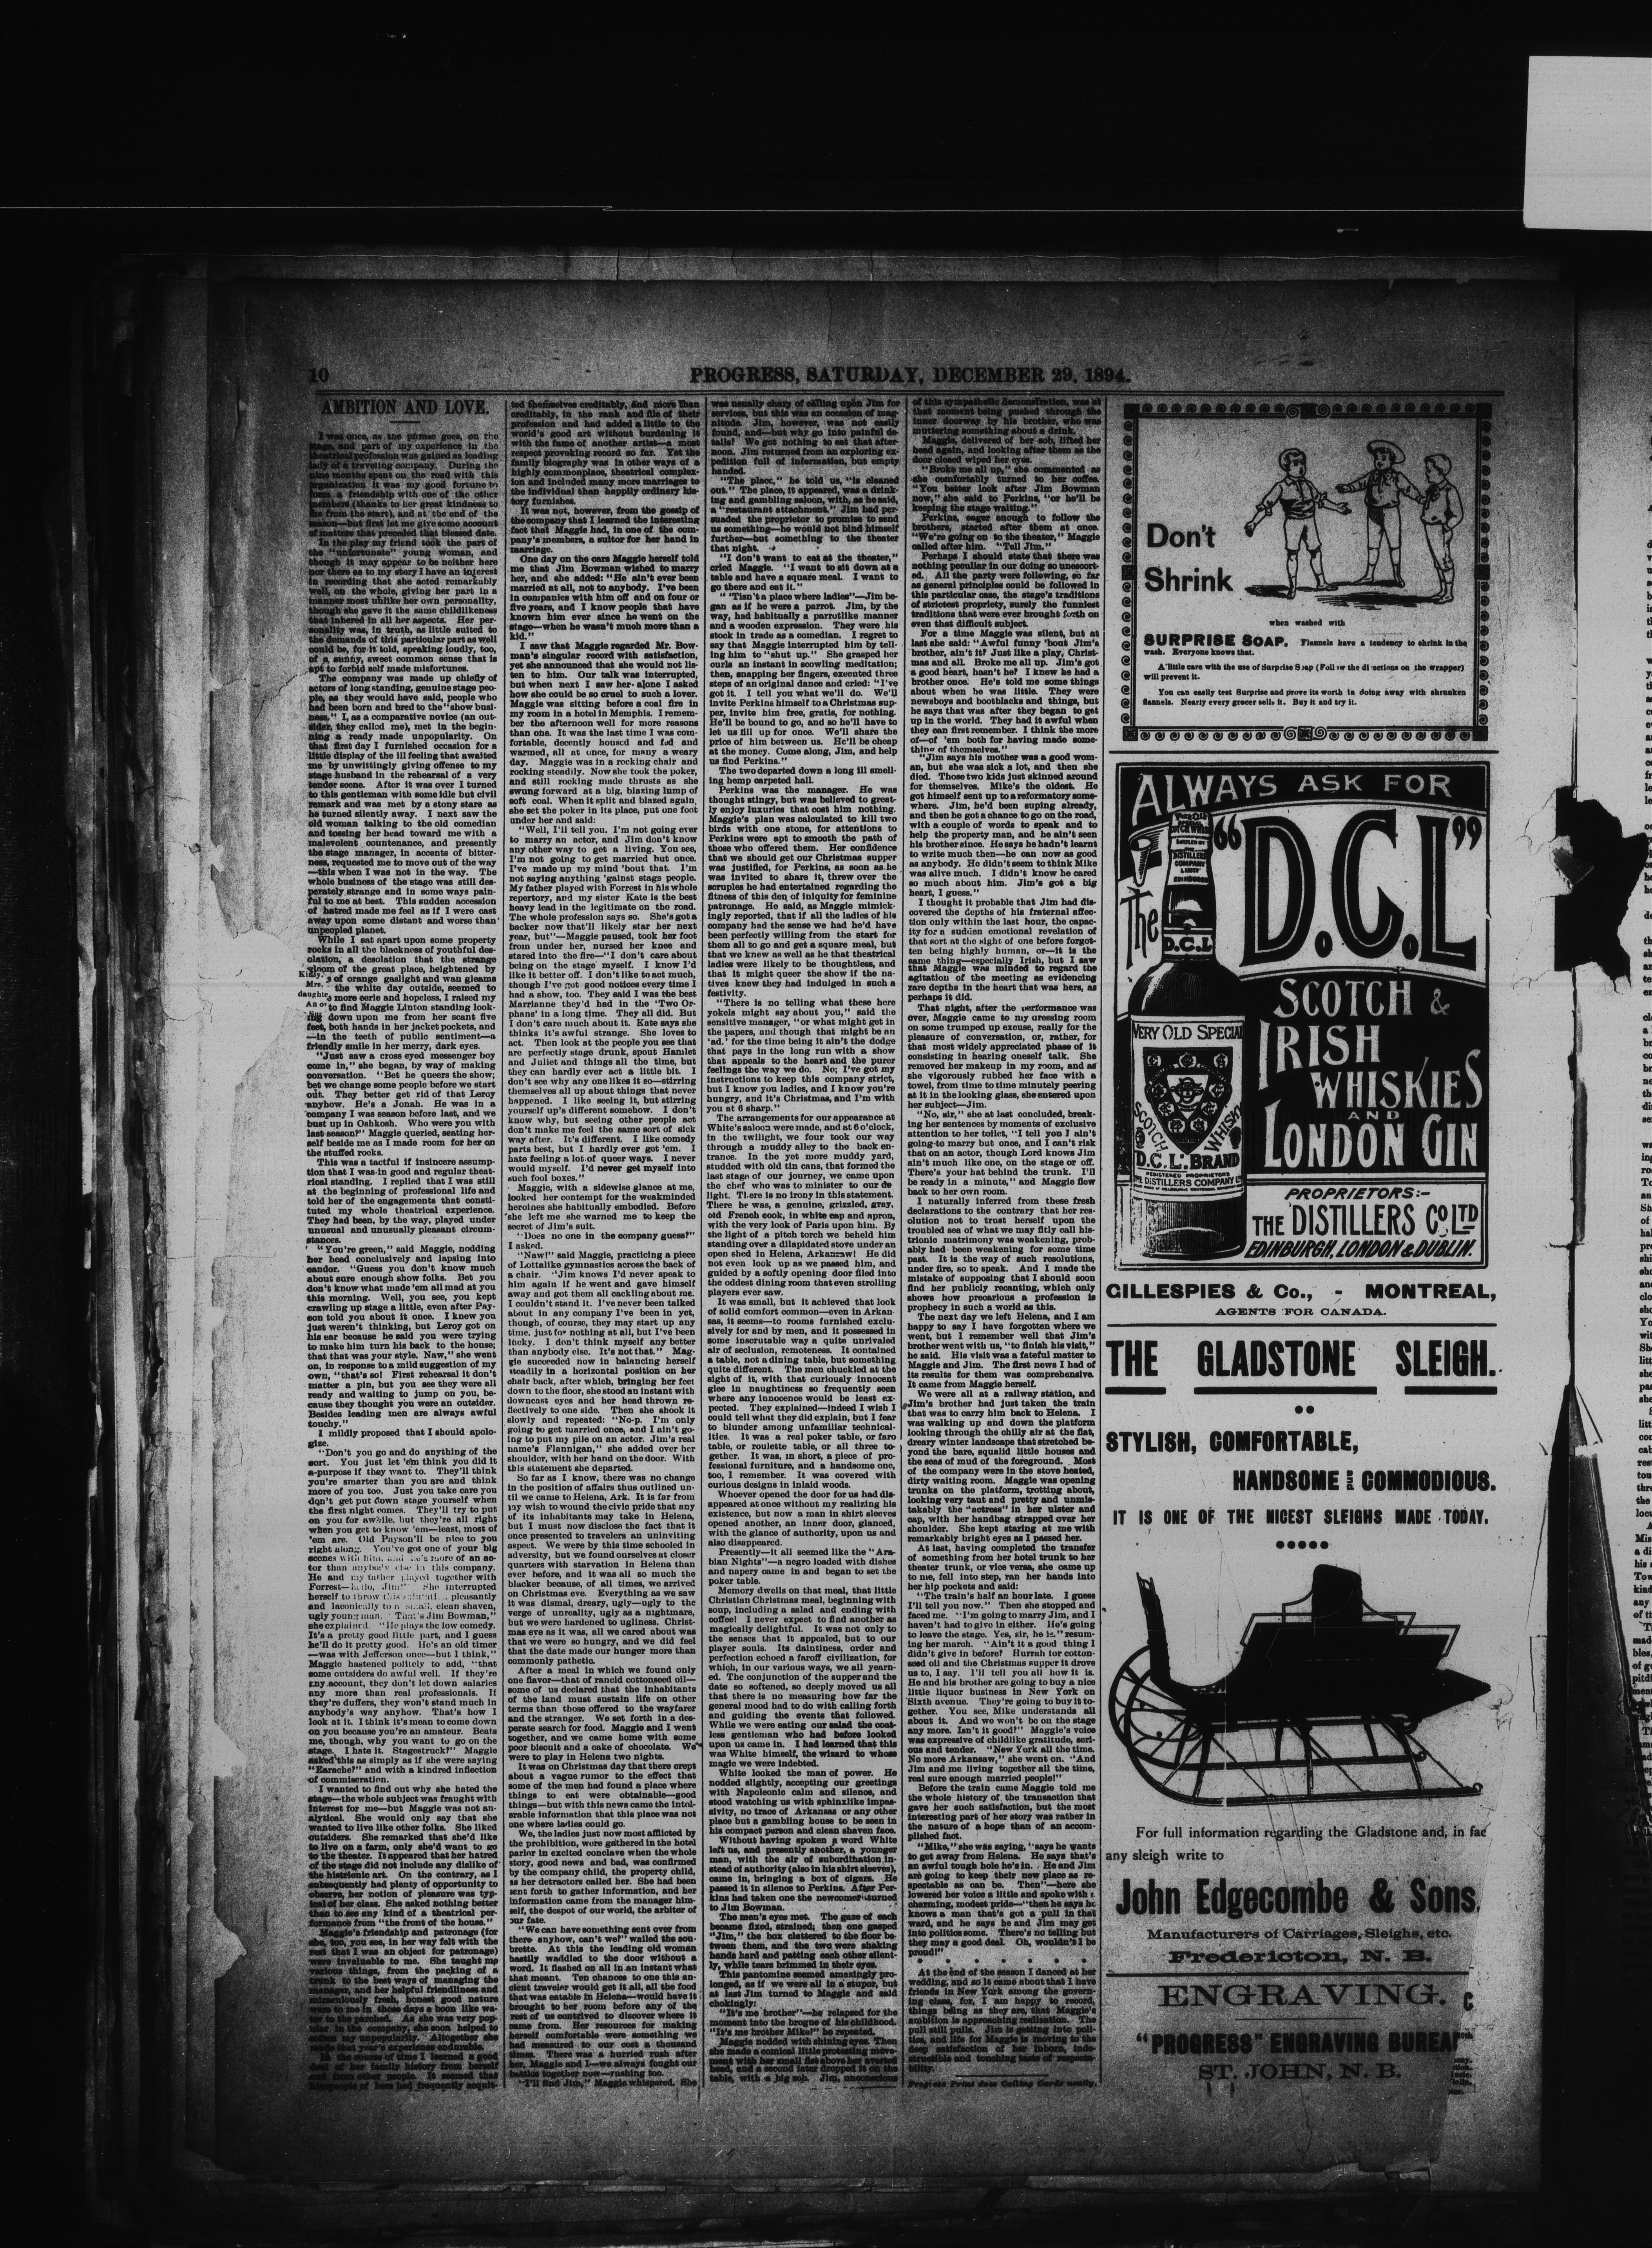 10
PROGRESS, SATURDAY, DECEMBER 29, 1894.
AMBITION AND LOVE.
I was once, as the phrase goes, on the
stage, and part of my experience in the
theatrical profession was gained as leading
lady of a traveling company. During the
nine months spent on the road with this
organization it was my good fortune to
form a friendship with one of the other
members (thanks to her great kindness to
me from the start), and at the end of the
season—but first let me give some account
of matters that preceded that blessed date.
In the play my friend took the part of
the "unfortunate" young woman, and
though it may appear to be neither here
nor there as to my story I have an interest
in recording that she acted remarkably
well, on the whole, giving her part in a
manner most unlike her own personality,
though she gave it the same childlikeness
that inhered in all her aspects. Her per-
sonality was, in truth, as little suited to
the demands of this particular part as well
could be, for it told, speaking loudly, too,
of a sunny, sweet common sense that is
apt to forbid self made misfortunes.
The company was made up chiefly of
actors of long standing, genuine stage peo-
ple, as they would have said, people who
had been born and bred to the "show busi-
ness." I, as a comparative novice (an out-
sider, they called me), met in the begin-
ning a ready made unpopularity. On
that first day I furnished occasion for a
little display of the ill feeling that awaited
me by unwittingly giving offense to my
stage husband in the rehearsal of a very
tender scene. After it was over I turned
to this gentleman with some idle but civil
remark and was met by a stony stare as
he turned silently away. I next saw the
old woman talking to the old comedian
and tossing her head toward me with a
malevolent countenance, and presently
the stage manager, in accents of bitter-
ness, requested me to move out of the way
—this when I was not in the way. The
whole business of the stage was still des-
perately strange and in some ways pain-
ful to me at best. This sudden accession
of hatred made me feel as if I were cast
away upon some distant and worse than
unpeopled planet.
While I sat apart upon some property
rocks in all the blackness of youthful des-
olation, a desolation that the strange
gloom of the great place, heightened by
of orange gaslight and wan gleams
the white day outside, seemed to
more eerie and hopeless, I raised my
to find Maggie Linton standing look-
ing down upon me from her scant five
feet, both hands in her jacket pockets, and
—in the teeth of public sentiment—a
friendly smile in her merry, dark eyes.
"Just saw a cross eyed messenger boy
come in," she began, by way of making
conversation. "Bet he queers the show;
bet we change some people before we start
out. They better get rid of that Leroy
anyhow. He's a Jonah. He was in a
company I was season before last, and we
bust up in Oshkosh. Who were you with
last season?" Maggie queried, seating her-
self beside me as I made room for her on
the stuffed rocks.
This was a tactful if insincere assump-
tion that I was in good and regular theat-
rical standing. I replied that I was still
at the beginning of professional life and
told her of the engagements that consti-
tuted my whole theatrical experience.
They had been, by the way, played under
unusual and unusually pleasant circum-
stances.
"You're green," said Maggie, nodding
her head conclusively and lapsing into
candor. "Guess you don't know much
about sure enough show folks. Bet you
don't know what made 'em all mad at you
this morning. Well, you see, you kept
crawling up stage a little, even after Pay-
son told you about it once. I knew you
just weren't thinking, but Leroy got on
his ear because he said you were trying
to make him turn his back to the house;
that that was your style. Naw," she went
on, in response to a mild suggestion of my
own, "that's so! First rehearsal it don't
matter a pin, but you see they were all
ready and waiting to jump on you, be-
cause they thought you were an outsider.
Besides leading men are always awful
touchy."
I mildly proposed that I should apolo-
gize.
"Don't you go and do anything of the
sort. You just let 'em think you did it
a-purpose if they want to. They'll think
you're smarter than you are and think
more of you too. Just you take care you
don't get put down stage yourself when
the first night comes. They'll try to put
on you for awhile, but they're all right
when you get to know 'em—least, most of
'em are. Old Payson'll be nice to you
right along. You've got one of your big
scenes with him, and he's more of an ac-
tor than anybody else in this company.
He and my father played together with
Forrest—hello, Jim!" She interrupted
herself to throw this salutation pleasantly
and laconically to a small, clean shaven,
ugly young man. "That's Jim Bowman,"
she explained. "He plays the low comedy.
It's a pretty good little part, and I guess
he'll do it pretty good. He's an old timer
—was with Jefferson once—but I think,"
Maggie hastened politely to add, "that
some outsiders do awful well. If they're
any account, they don't let down salaries
any more than real professionals. If
they're duffers, they won't stand much in
anybody's way anyhow. That's how I
look at it. I think it's mean to come down
on you because you're an amateur. Beats
me, though, why you want to go on the
stage. I hate it. Stagestruck?" Maggie
asked this as simply as if she were saying
"Earache?" and with a kindred inflection
of commiseration.
I wanted to find out why she hated the
stage—the whole subject was fraught with
interest for me—but Maggie was not an-
alytical. She would only say that she
wanted to live like other folks. She liked
outsiders. She remarked that she'd like
to live on a farm, only she'd want to go
to the theater. It appeared that her hatred
of the stage did not include any dislike of
the histrionic art. On the contrary, as I
subsequently had plenty of opportunity to
observe, her notion of pleasure was typ-
ical of her class. She asked nothing better
than to see any kind of a theatrical per-
formance from "the front of the house."
Maggie's friendship and patronage (for
she, too, you see, in her way felt with the
rest that I was an object for patronage)
were invaluable to me. She taught me
various things, from the packing of a
trunk to the best ways of managing the
manager, and her helpful friendliness and
miraculously fresh, honest good nature
were to me in those days a boon like wa-
ter to the parched. As she was very pop-
ular in the company, she soon helped to
soften my unpopularity. Altogether she
made that year's experience endurable.
In the course of time I learned a good
deal of her family history from herself
and from other people. It seemed that
kinspeople of hers had frequently acquit-
ted themselves creditably, and more than
creditably, in the rank and file of their
profession and had added a little to the
world's good art without burdening it
with the fame of another artist—a most
respect provoking record so far. Yet the
family biography was in other ways of a
highly commonplace, theatrical complex-
ion and included many more marriages to
the individual than happily ordinary his-
tory furnishes.
It was not, however, from the gossip of
the company that I learned the interesting
fact that Maggie had, in one of the com-
pany's members, a suitor for her hand in
marriage.
One day on the cars Maggie herself told
me that Jim Bowman wished to marry
her, and she added: "He ain't ever been
married at all, not to anybody. I've been
in companies with him off and on four or
five years, and I know people that have
known him ever since he went on the
stage—when he wasn't much more than a
kid."
I saw that Maggie regarded Mr. Bow-
man's singular record with satisfaction,
yet she announced that she would not lis-
ten to him. Our talk was interrupted,
but when next I saw her alone I asked
how she could be so cruel to such a lover.
Maggie was sitting before a coal fire in
my room in a hotel in Memphis. I remem-
ber the afternoon well for more reasons
than one. It was the last time I was com-
fortable, decently housed and fed and
warmed, all at once, for many a weary
day. Maggie was in a rocking chair and
rocking steadily. Now she took the poker,
and still rocking made thrusts as she
swung forward at a big, blazing lump of
soft coal. When it split and blazed again,
she set the poker in its place, put one foot
under her and said:
"Well, I'll tell you. I'm not going ever
to marry an actor, and Jim don't know
any other way to get a living. You see,
I'm not going to get married but once.
I've made up my mind 'bout that. I'm
not saying anything 'gainst stage people.
My father played with Forrest in his whole
repertory, and my sister Kate is the best
heavy lead in the legitimate on the road.
The whole profession says so. She's got a
backer now that'll likely star her next
year, but"—Maggie paused, took her foot
from under her, nursed her knee and
stared into the fire—"I don't care about
being on the stage myself. I know I'd
like it better off. I don't like to act much,
though I've got good notices every time I
had a show, too. They said I was the best
Marrianne they'd had in the 'Two Or-
phans' in a long time. They all did. But
I don't care much about it. Kate says she
thinks it's awful strange. She loves to
act. Then look at the people you see that
are perfectly stage drunk, spout Hamlet
and Juliet and things all the time, but
they can hardly ever act a little bit. I
don't see why any one likes it so—stirring
themselves all up about things that never
happened. I like seeing it, but stirring
yourself up's different somehow. I don't
know why, but seeing other people act
don't make me feel the same sort of sick
way after. It's different. I like comedy
parts best, but I hardly ever got 'em. I
hate feeling a lot of queer ways. I never
would myself. I'd never get myself into
such fool boxes."
Maggie, with a sidewise glance at me,
looked her contempt for the weakminded
heroines she habitually embodied. Before
she left me she warned me to keep the
secret of Jim's suit.
"Does no one in the company guess?"
I asked.
"Naw!" said Maggie, practicing a piece
of Lottalike gymnastics across the back of
a chair. "Jim knows I'd never speak to
him again if he went and gave himself
away and got them all cackling about me.
I couldn't stand it. I've never been talked
about in any company I've been in yet,
though, of course, they may start up any
time, just for nothing at all, but I've been
lucky. I don't think myself any better
than anybody else. It's not that." Mag-
gie succeeded now in balancing herself
steadily in a horizontal position on her
chair back, after which, bringing her feet
down to the floor, she stood an instant with
downcast eyes and her head thrown re-
flectively to one side. Then she shook it
slowly and repeated: "No-p. I'm only
going to get married once, and I ain't go-
ing to put my pile on an actor. Jim's real
name's Flannigan," she added over her
shoulder, with her hand on the door. With
this statement she departed.
So far as I know, there was no change
in the position of affairs thus outlined un-
til we came to Helena, Ark. It is far from
my wish to wound the civic pride that any
of its inhabitants may take in Helena,
but I must now disclose the fact that it
once presented to travelers an uninviting
aspect. We were by this time schooled in
adversity, but we found ourselves at closer
quarters with starvation in Helena than
ever before, and it was all so much the
blacker because, of all times, we arrived
on Christmas eve. Everything as we saw
it was dismal, dreary, ugly—ugly to the
verge of unreality, ugly as a nightmare,
but we were hardened to ugliness. Christ-
mas eve as it was, all we cared about was
that we were so hungry, and we did feel
that the date made our hunger more than
commonly pathetic.
After a meal in which we found only
one flavor—that of rancid cottonseed oil—
some of us declared that the inhabitants
of the land must sustain life on other
terms than those offered to the wayfarer
and the stranger. We set forth in a des-
perate search for food. Maggie and I went
together, and we came home with some
poor biscuit and a cake of chocolate. We
were to play in Helena two nights.
It was on Christmas day that there crept
about a vague rumor to the effect that
some of the men had found a place where
things to eat were obtainable—good
things—but with this news came the intol-
erable information that this place was not
one where ladies could go.
We, the ladies just now most afflicted by
the prohibition, were gathered in the hotel
parlor in excited conclave when the whole
story, good news and bad, was confirmed
by the company child, the property child,
as her detractors called her. She had been
sent forth to gather information, and her
information came from the manager him-
self, the despot of our world, the arbiter of
our fate.
"We can have something sent over from
there anyhow, can't we?" wailed the sou-
brette. At this the leading old woman
hastily waddled to the door without a
word. It flashed on all in an instant what
that meant. Ten chances to one this an-
cient traveler would get it all, all the food
that was eatable in Helena—would have it
brought to her room before any of the
rest of us contrived to discover where it
came from. Her resources for making
herself comfortable were something we
had measured to our cost a thousand
times. There was a hurried rush after
her, Maggie and I—we always fought our
battles together now—rushing too.
"I'll find Jim," Maggie whispered. She
was usually chary of calling upon Jim for
services, but this was an occasion of mag-
nitude. Jim, however, was not easily
found, and—but why go into painful de-
tails? We got nothing to eat that after-
noon. Jim returned from an exploring ex-
pedition full of information, but empty
handed.
"The place," he told us, "is cleaned
out." The place, it appeared, was a drink-
ing and gambling saloon, with, as he said,
a "restaurant attachment." Jim had per-
suaded the proprietor to promise to send
us something—he would not bind himself
further—but something to the theater
that night.
"I don't want to eat at the theater,"
cried Maggie. "I want to sit down at a
table and have a square meal. I want to
go there and eat it."
" 'Tisn't a place where ladies"—Jim be-
gan as if he were a parrot. Jim, by the
way, had habitually a parrotlike manner
and a wooden expression. They were his
stock in trade as a comedian. I regret to
say that Maggie interrupted him by tell-
ing him to "shut up." She grasped her
curls an instant in scowling meditation;
then, snapping her fingers, executed three
steps of an original dance and cried: "I've
got it. I tell you what we'll do. We'll
invite Perkins himself to a Christmas sup-
per, invite him free, gratis, for nothing.
He'll be bound to go, and so he'll have to
let us fill up for once. We'll share the
price of him between us. He'll be cheap
at the money. Come along, Jim, and help
us find Perkins."
The two departed down a long ill smell-
ing hemp carpeted hall.
Perkins was the manager. He was
thought stingy, but was believed to great-
ly enjoy luxuries that cost him nothing.
Maggie's plan was calculated to kill two
birds with one stone, for attentions to
Perkins were apt to smooth the path of
those who offered them. Her confidence
that we should get our Christmas supper
was justified, for Perkins, as soon as he
was invited to share it, threw over the
scruples he had entertained regarding the
fitness of this den of iniquity for feminine
patronage. He said, as Maggie mimick-
ingly reported, that if all the ladies of his
company had the sense we had he'd have
been perfectly willing from the start for
them all to go and get a square meal, but
that we knew as well as he that theatrical
ladies were likely to be thoughtless, and
that it might queer the show if the na-
tives knew they had indulged in such a
festivity.
"There is no telling what these here
yokels might say about you," said the
sensitive manager, "or what might get in
the papers, and though that might be an
'ad.' for the time being it ain't the dodge
that pays in the long run with a show
that appeals to the heart and the purer
feelings the way we do. No; I've got my
instructions to keep this company strict,
but I know you ladies, and I know you're
hungry, and it's Christmas, and I'm with
you at 6 sharp."
The arrangements for our appearance at
White's saloon were made, and at 6 o'clock,
in the twilight, we four took our way
through a muddy alley to the back en-
trance. In the yet more muddy yard,
studded with old tin cans, that formed the
last stage of our journey, we came upon
the chef who was to minister to our de
light. There is no irony in this statement.
There he was, a genuine, grizzled, gray,
old French cook, in white cap and apron,
with the very look of Paris upon him. By
the light of a pitch torch we beheld him
standing over a dilapidated stove under an
open shed in Helena, Arkansaw! He did
not even look up as we passed him, and
guided by a softly opening door filed into
the oddest dining room that even strolling
players ever saw.
It was small, but it achieved that look
of solid comfort common—even in Arkan-
sas, it seems—to rooms furnished exclu-
sively for and by men, and it possessed in
some inscrutable way a quite unrivaled
air of seclusion, remoteness. It contained
a table, not a dining table, but something
quite different. The men chuckled at the
sight of it, with that curiously innocent
glee in naughtiness so frequently seen
where any innocence would be least ex-
pected. They explained—indeed I wish I
could tell what they did explain, but I fear
to blunder among unfamiliar technical-
ities. It was a real poker table, or faro
table, or roulette table, or all three to-
gether. It was, in short, a piece of pro-
fessional furniture, and a handsome one,
too, I remember. It was covered with
curious designs in inlaid woods.
Whoever opened the door for us had dis-
appeared at once without my realizing his
existence, but now a man in shirt sleeves
opened another, an inner door, glanced,
with the glance of authority, upon us and
also disappeared.
Presently—it all seemed like the "Ara-
bian Nights"—a negro loaded with dishes
and napery came in and began to set the
poker table.
Memory dwells on that meal, that little
Christian Christmas meal, beginning with
soup, including a salad and ending with
coffee! I never expect to find another as
magically delightful. It was not only to
the senses that it appealed, but to our
player souls. Its daintiness, order and
perfection echoed a faroff civilization, for
which, in our various ways, we all yearn-
ed. The conjunction of the supper and the
date so softened, so deeply moved us all
that there is no measuring how far the
general mood had to do with calling forth
and guiding the events that followed.
While we were eating our salad the coat-
less gentleman who had before looked
upon us came in. I had learned that this
was White himself, the wizard to whose
magic we were indebted.
White looked the man of power. He
nodded slightly, accepting our greetings
with Napoleonic calm and silence, and
stood watching us with sphinxlike impas-
sivity, no trace of Arkansas or any other
place but a gambling house to be seen in
his compact person and clean shaven face.
Without having spoken a word White
left us, and presently another, a younger
man, with the air of subordination in-
stead of authority (also in his shirt sleeves),
came in, bringing a box of cigars. He
passed it in silence to Perkins. After Per-
kins had taken one the newcomer turned
to Jim Bowman.
The men's eyes met. The gaze of each
became fixed, strained; then one gasped
"Jim," the box clattered to the floor be-
tween them, and the two were shaking
hands hard and patting each other silent-
ly, while tears brimmed in their eyes.
This pantomine seemed amazingly pro-
longed, as if we were all in a stupor, but
at last Jim turned to Maggie and said
chokingly:
"It's me brother"—he relapsed for the
moment into the brogue of his childhood.
"It's me brother Mike!" he repeated.
Maggie nodded with shining eyes. Then
she made a comical little protesting move-
ment with her small fist above her averted
head, and a second later dropped it on the
table, with a big sob. Jim, unconscious
of this sympathetic demonstration, was at
that moment being pushed through the
inner doorway by his brother, who was
muttering something about a drink.
Maggie, delivered of her sob, lifted her
head again, and looking after them as the
door closed wiped her eyes.
"Broke me all up," she commented as
she comfortably turned to her coffee.
"You better look after Jim Bowman
now," she said to Perkins, "or he'll be
keeping the stage waiting."
Perkins, eager enough to follow the
brothers, started after them at once.
"We're going on to the theater," Maggie
called after him. "Tell Jim."
Perhaps I should state that there was
nothing peculiar in our doing so unescort-
ed. All the party were following, so far
as general principles could be followed in
this particular case, the stage's traditions
of strictest propriety, surely the funniest
traditions that were ever brought forth on
even that difficult subject.
For a time Maggie was silent, but at
last she said: "Awful funny 'bout Jim's
brother, ain't it? Just like a play, Christ-
mas and all. Broke me all up. Jim's got
a good heart, hasn't he? I knew he had a
brother once. He's told me some things
about when he was little. They were
newsboys and bootblacks and things, but
he says that was after they began to get
up in the world. They had it awful when
they can first remember. I think the more
of—of 'em both for having made some-
thing of themselves."
"Jim says his mother was a good wom-
an, but she was sick a lot, and then she
died. Those two kids just skinned around
for themselves. Mike's the oldest. He
got himself sent up to a reformatory some-
where. Jim, he'd been suping already,
and then he got a chance to go on the road,
with a couple of words to speak and to
help the property man, and he ain't seen
his brother since. He says he hadn't learnt
to write much then—he can now as good
as anybody. He didn't seem to think Mike
was alive much. I didn't know he cared
so much about him. Jim's got a big
heart, I guess."
I thought it probable that Jim had dis-
covered the depths of his fraternal affec-
tion only within the last hour, the capac-
ity for a sudden emotional revelation of
that sort at the sight of one before forgot-
ten being highly human, or—it is the
same thing—especially Irish, but I saw
that Maggie was minded to regard the
agitation of the meeting as evidencing
rare depths in the heart that was hers, as
perhaps it did.
That night, after the performance was
over, Maggie came to my dressing room
on some trumped up excuse, really for the
pleasure of conversation, or, rather, for
that most widely appreciated phase of it
consisting in hearing oneself talk. She
removed her makeup in my room, and as
she vigorously rubbed her face with a
towel, from time to time minutely peering
at it in the looking glass, she entered upon
her subject—Jim.
"No, sir," she at last concluded, break-
ing her sentences by moments of exclusive
attention to her toilet, "I tell you I ain't
going to marry but once, and I can't risk
that on an actor, though Lord knows Jim
ain't much like one, on the stage or off.
There's your hat behind the trunk. I'll
be ready in a minute," and Maggie flew
back to her own room.
I naturally inferred from these fresh
declarations to the contrary that her res-
olution not to trust herself upon the
troubled sea of what we may fitly call his-
trionic matrimony was weakening, prob-
ably had been weakening for some time
past. It is the way of such resolutions,
under fire, so to speak. And I made the
mistake of supposing that I should soon
find her publicly recanting, which only
shows how precarious a profession is
prophecy in such a world as this.
The next day we left Helena, and I am
happy to say I have forgotten where we
went, but I remember well that Jim's
brother went with us, "to finish his visit,"
he said. His visit was a fateful matter to
Maggie and Jim. The first news I had of
its results for them was comprehensive.
It came from Maggie herself.
We were all at a railway station, and
Jim's brother had just taken the train
that was to carry him back to Helena. I
was walking up and down the platform
looking through the chilly air at the flat,
dreary winter landscape that stretched be-
yond the bare, squalid little houses and
the seas of mud of the foreground. Most
of the company were in the stove heated,
dirty waiting room. Maggie was opening
trunks on the platform, trotting about,
looking very taut and pretty and unmis-
takably the "actress" in her ulster and
cap, with her handbag strapped over her
shoulder. She kept staring at me with
remarkably bright eyes as I passed her.
At last, having completed the transfer
of something from her hotel trunk to her
theater trunk, or vice versa, she came up
to me, fell into step, ran her hands into
her hip pockets and said:
"The train's half an hour late. I guess
I'll tell you now." Then she stopped and
faced me. "I'm going to marry Jim, and I
haven't had to give in either. He's going
to leave the stage. Yes, sir, he is." resum-
ing her march. "Ain't it a good thing I
didn't give in before? Hurrah for cotton-
seed oil and the Christmas supper it drove
us to, I say. I'll tell you all how it is.
He and his brother are going to buy a nice
little liquor business in New York on
Sixth avenue. They're going to buy it to-
gether. You see, Mike understands all
about it. And we won't be on the stage
any more. Isn't it good?" Maggie's voice
was expressive of childlike gratitude, seri-
ous and tender. "New York all the time.
No more Arkansaw," she went on. "And
Jim and me living together all the time,
real sure enough married people!"
Before the train came Maggie told me
the whole history of the transaction that
gave her such satisfaction, but the most
interesting part of her story was rather in
the nature of a hope than of an accom-
plished fact.
"Mike," she was saying, "says he wants
to get away from Helena. He says that's
an awful tough hole he's in. He and Jim
are going to keep their new place as re-
spectable as can be. Then"—here she
lowered her voice a little and spoke with a
charming, modest pride—"then he says he
knows a man that's got a pull in that
ward, and he says he and Jim may get
into politics some. There's no telling but
they may a good deal. Oh, wouldn't I be
proud!"
* * * * * * *
At the end of the season I danced at her
wedding, and so it came about that I have
friends in New York among the govern-
ing class, for, I am happy to record,
things being as they are, that Maggie's
ambition is approaching realization. The
pull still pulls. Jim is getting into poli-
tics, and life for Maggie is moving to the
deep satisfaction of her inborn, inde-
structible and touching taste of respecta-
bility.
Progress Print does Calling Cards neatly.
Don't
Shrink
when washed with
SURPRISE SOAP. Flannels have a tendency to shrink in the
wash. Everyone knows that.
A little care with the use of Surprise Soap (Follow the directions on the wrapper)
will prevent it.
You can easily test Surprise and prove its worth in doing away with shrunken
flannels. Nearly every grocer sells it. Buy it and try it.
ALWAYS ASK FOR
The
"D.C.L"
SCOTCH &
IRISH
WHISKIES
AND
LONDON GIN
D.C.L
VERY OLD SPECIAL
SCOTCH WHISKY
D.C.L. BRAND
REGISTERED PROPRIETORS
THE DISTILLERS COMPANY
PROPRIETORS:-
THE DISTILLERS Co LTD
EDINBURGH, LONDON & DUBLIN.
GILLESPIES & Co., - MONTREAL,
AGENTS FOR CANADA.
THE GLADSTONE SLEIGH.
STYLISH, COMFORTABLE,
HANDSOME and COMMODIOUS.
IT IS ONE OF THE NICEST SLEIGHS MADE TODAY.
For full information regarding the Gladstone and, in fac
any sleigh write to
John Edgecombe & Sons,
Manufacturers of Carriages, Sleighs, etc.
Fredericton, N. B.
ENGRAVING.
"PROGRESS" ENGRAVING BUREAU
ST. JOHN, N. B.